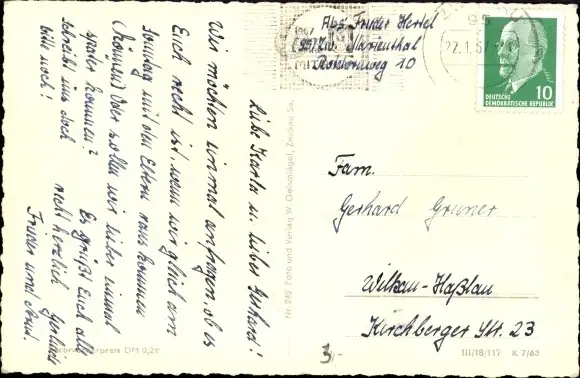 Liebe Karla u. lieber Gerhard!
Wir möchten mal anfragen, ob es
Euch recht ist, wenn wir gleich am
Sonntag mit den Eltern raus kommen
(können) Oder sollen wir lieber einmal
später kommen?
schreibt uns doch
bitte noch!
Es grüßt Euch alle
recht herzlich Gerlinde
Frieder und
Abs. Frieder Hertel
(95) Zw. Marienthal
10
1967
22.1.67
DEUTSCHE
DEMOKRATISCHE REPUBLIK
10
Fam.
Gerhard Gruner
Wilkau-Haßlau
Kirchberger Str. 23
Nr. 242 Foto und Verlag W. Oelschlägel, Zwickau Sa.
DM 0,20
3,-
III/18/117 K 7/63